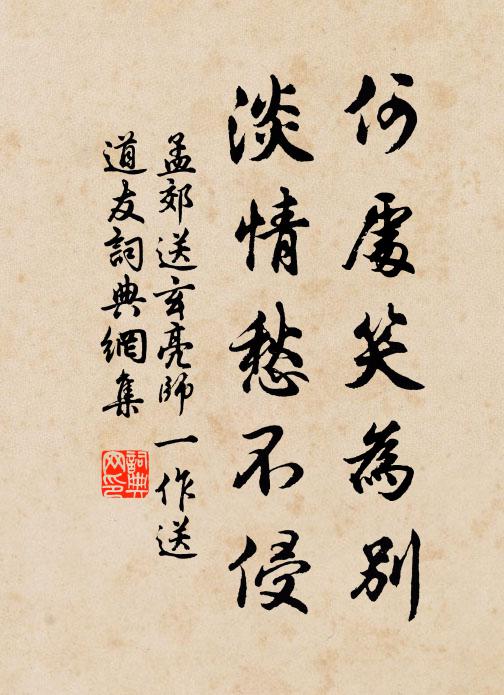 何處笑為別
淡情愁不侵
孟郊送玄亮師一作送
道友詞典網集
詞典
网印